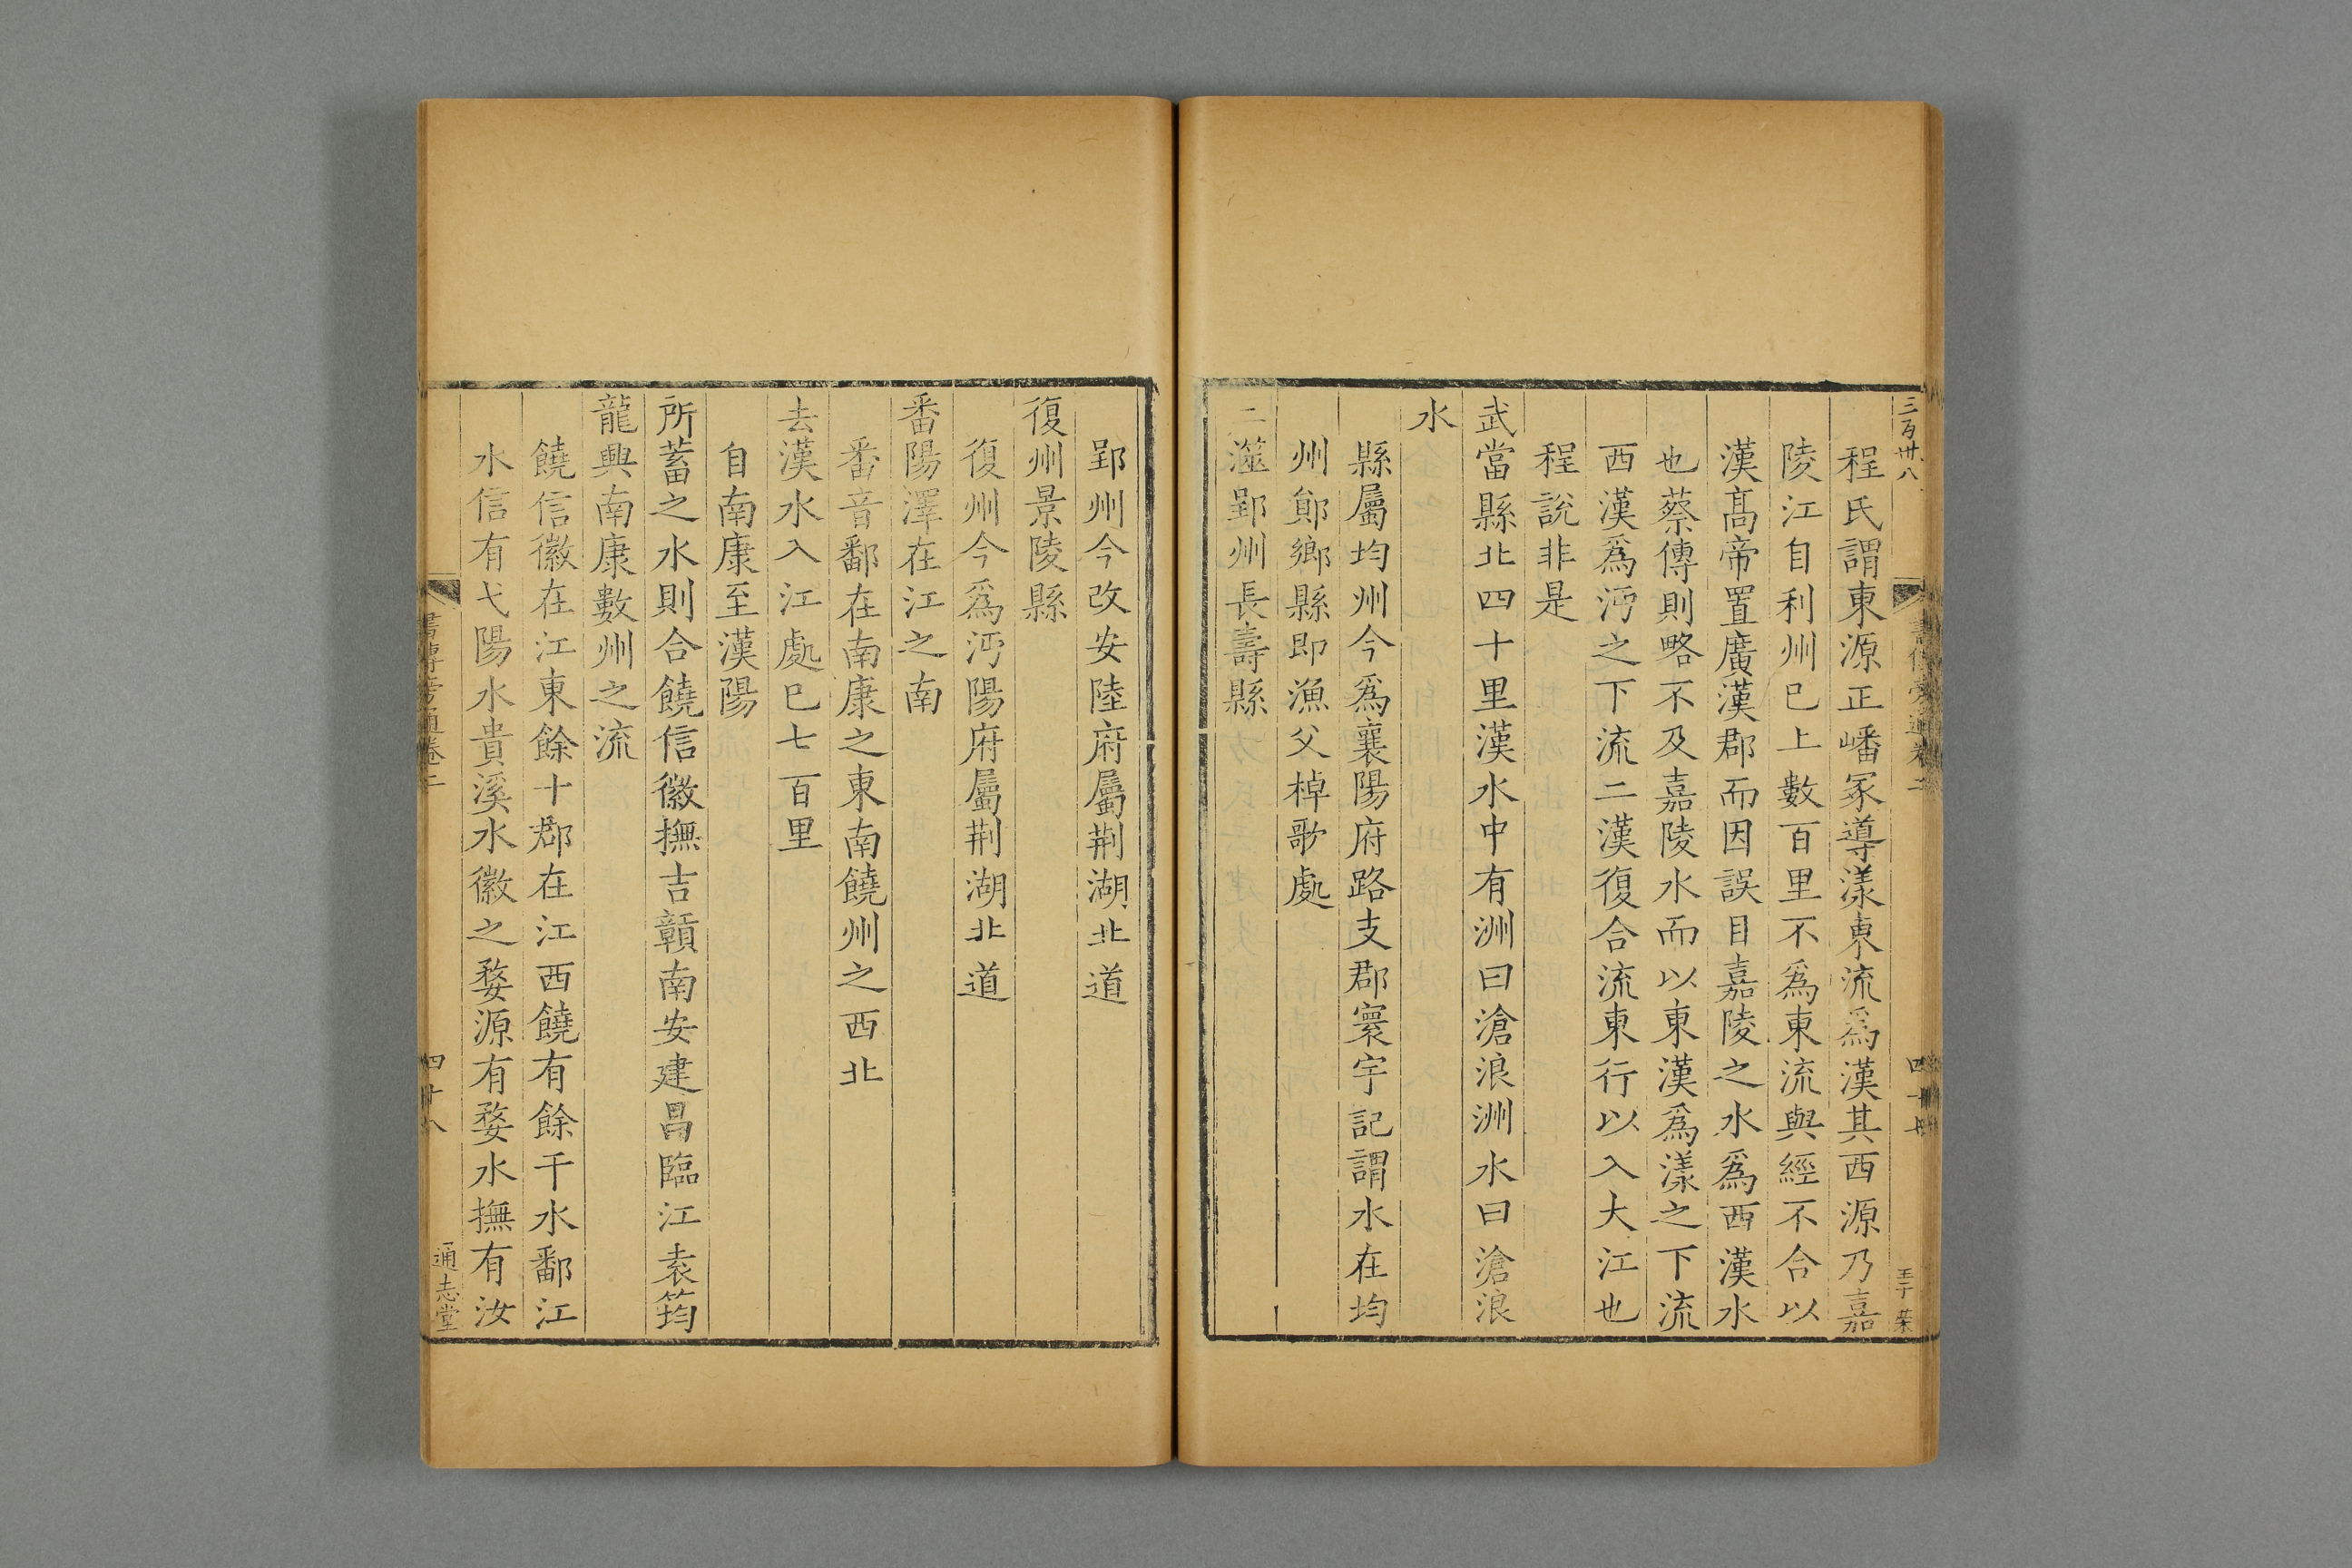 三百卅八
書傳旁通卷二
四十七
程氏謂東源正嶓冢導漾東流爲漢其西源乃嘉
陵江自利州巳上數百里不爲東流與經不合以
漢髙帝置廣漢郡而因誤目嘉陵之水爲西漢水
也蔡傳則略不及嘉陵水而以東漢爲漾之下流
西漢爲沔之下流二漢復合流東行以入大江也
程說非是
武當縣北四十里漢水中有洲曰滄浪洲水曰滄浪
水
縣屬均州今爲襄陽府路支郡寰宇記謂水在均
州鄖鄉縣即漁父棹歌處
二澨郢州長壽縣
郢州今改安陸府屬荆湖北道
復州景陵縣
復州今爲沔陽府屬荆湖北道
番陽澤在江之南
番音鄱在南康之東南饒州之西北
去漢水入江處巳七百里
自南康至漢陽
所蓄之水則合饒信徽撫吉贑南安建昌臨江袁筠
龍興南康數州之流
饒信徽在江東餘十郡在江西饒有餘干水鄱江
水信有弋陽水貴溪水徽之婺源有婺水撫有汝
書傳旁通卷二
四十八
通志堂